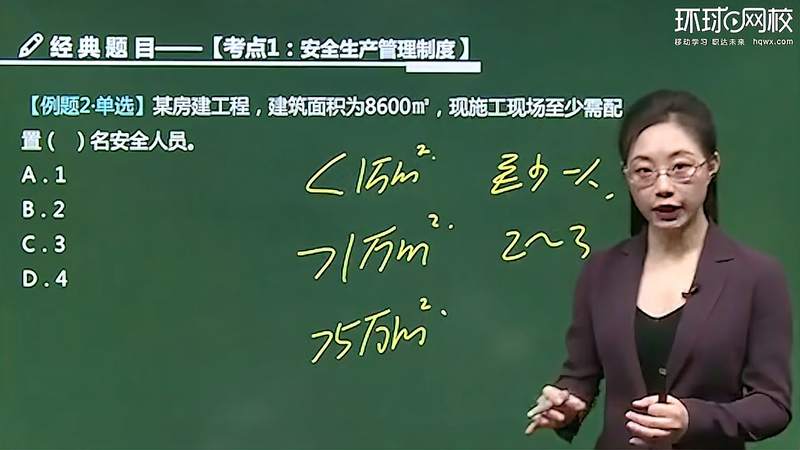 环球网校
移动学习 职达未来 hqwx.com
经典题目——【考点1：安全生产管理制度】
【例题2·单选】某房建工程，建筑面积为8600㎡，现施工现场至少需配
置（ ）名安全人员。
A.1
B.2
C.3
D.4
<1万m². 至少一人.
>1万m². 2~3
>5万m².